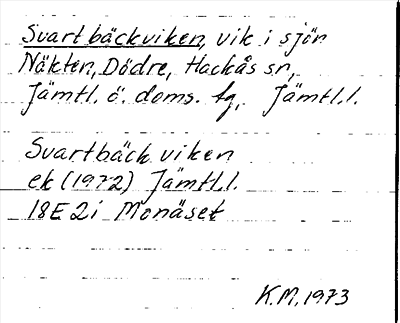 Svartbäckviken, vik i sjön
Näkten, Dödre, Hackås sn,
Jämtl. ö. doms. tg, Jämtl.l.
Svartbäckviken
ek (1972) Jämtl.l.
18E 2i Monäset
K.M. 1973